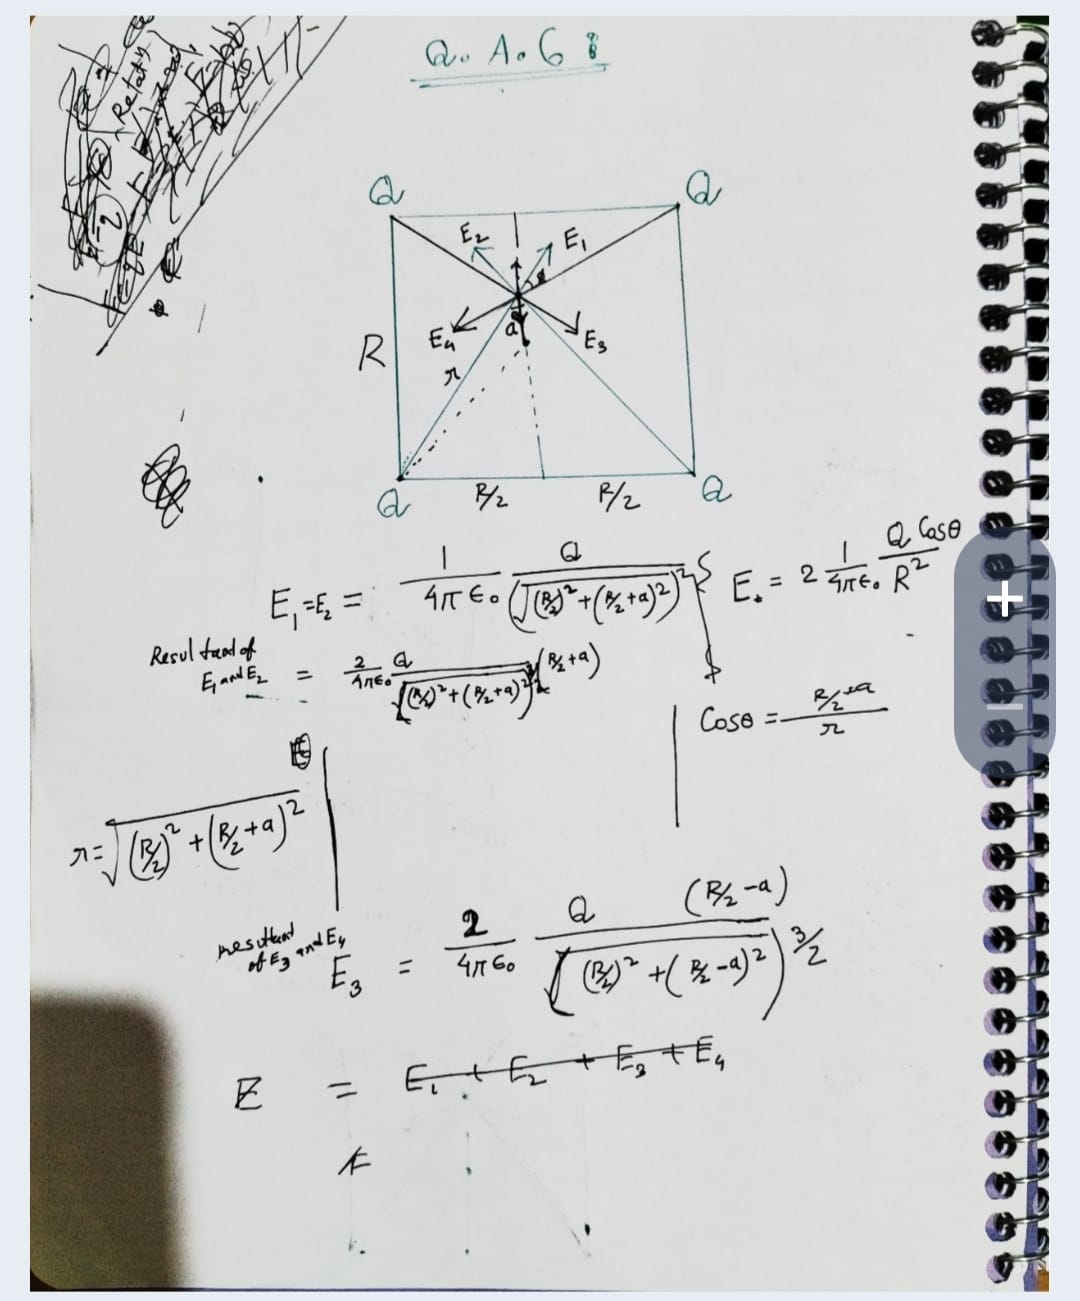 Q. A. 6 :
Q Q
E₂ E₁
θ
R E₄ a E₃
r
Q R/2 R/2 Q
E₁ = E₂ = 1/4πε₀ Q/(√(R/2)² + (R/2+a)²)² } E. = 2 1/4πε₀ Q Cosθ/R²
Resultant of E₁ and E₂ = 2/4πε₀ Q/(√(R/2)² + (R/2+a)²)³ (R/2+a)
Cosθ = R/2+a/r
r = √(R/2)² + (R/2+a)²
resultant of E₃ and E₄
E₃ = 2/4πε₀ Q (R/2-a)/((R/2)² + (R/2-a)²)^3/2
E = E₁ + E₂ + E₃ + E₄
E